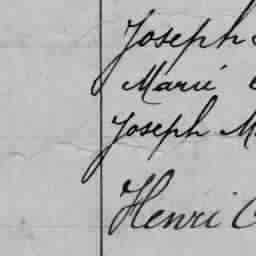 Joseph
Marie
Joseph M
Henri